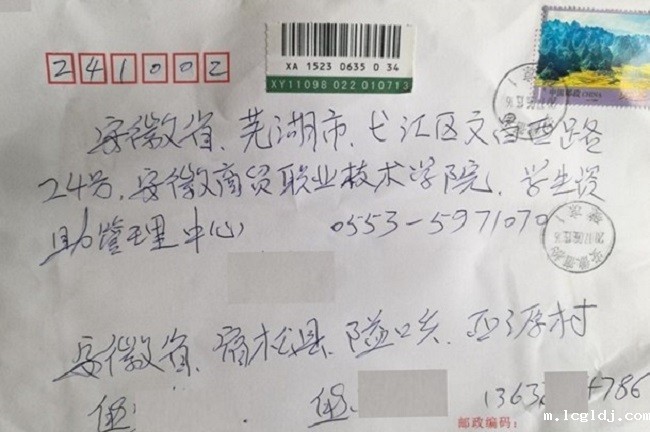 XA 1523 0635 0 34
XY11098 022 010713
241002
中国邮政 CHINA
安徽省、芜湖市、弋江区文昌西路
24号,安徽商贸职业技术学院,学生资
助管理中心 0553-5971070
安徽省、宿松县、隘口乡、
伍 伍 1363 4786
邮政编码:
m.lcgldj.com